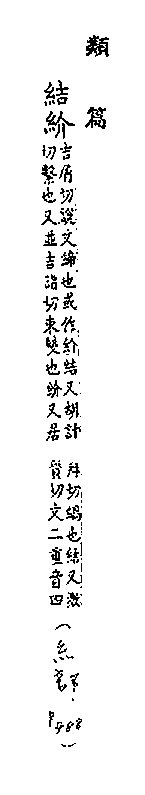 類篇
結紒
吉屑切說文締也或作紒結又胡計
切繫也又並吉詣切束髮也紒又居
拜切也結又激
質切文二重音四
(糸部. P488)